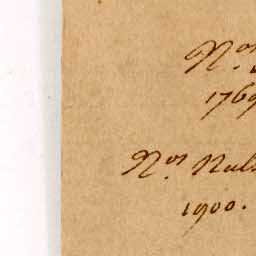 No.
176
No. Nul
1900.